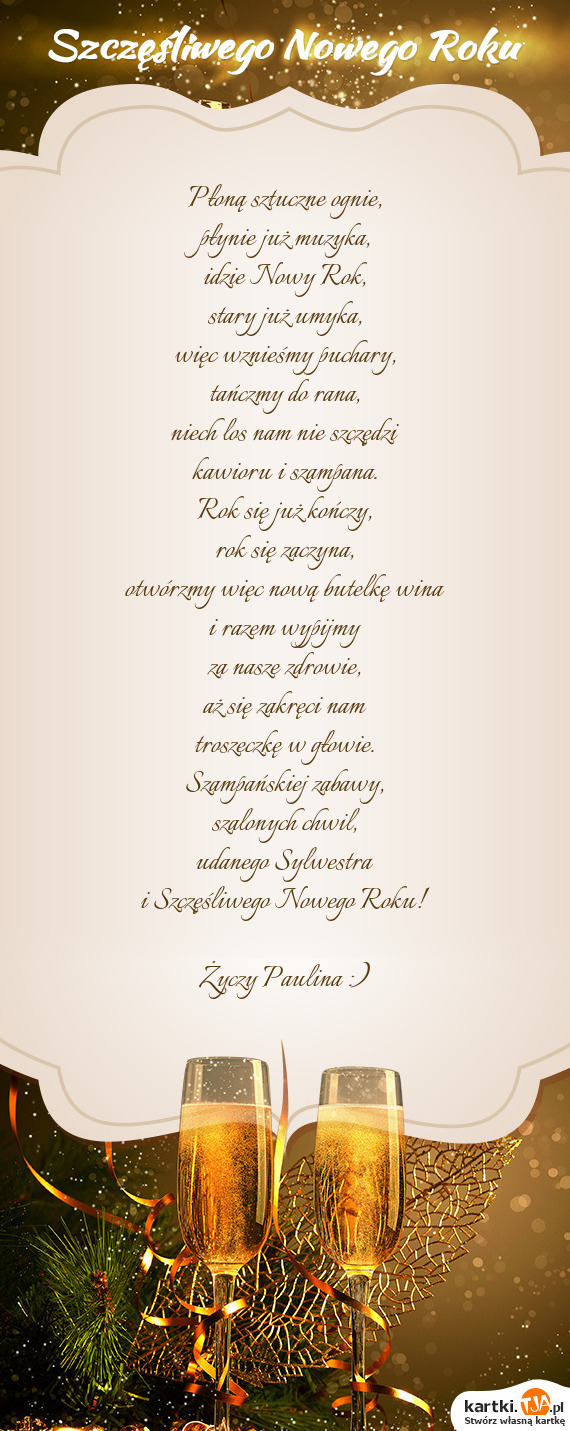 Szczęśliwego Nowego Roku
Płoną sztuczne ognie,
płynie już muzyka,
idzie Nowy Rok,
stary już umyka,
więc wznieśmy puchary,
tańczmy do rana,
niech los nam nie szczędzi
kawioru i szampana.
Rok się już kończy,
rok się zaczyna,
otwórzmy więc nową butelkę wina
i razem wypijmy
za nasze zdrowie,
aż się zakręci nam
troszeczkę w głowie.
Szampańskiej zabawy,
szalonych chwil,
udanego Sylwestra
i Szczęśliwego Nowego Roku!
Życzy Paulina :)
kartki.TJA.pl
Stwórz własną kartkę